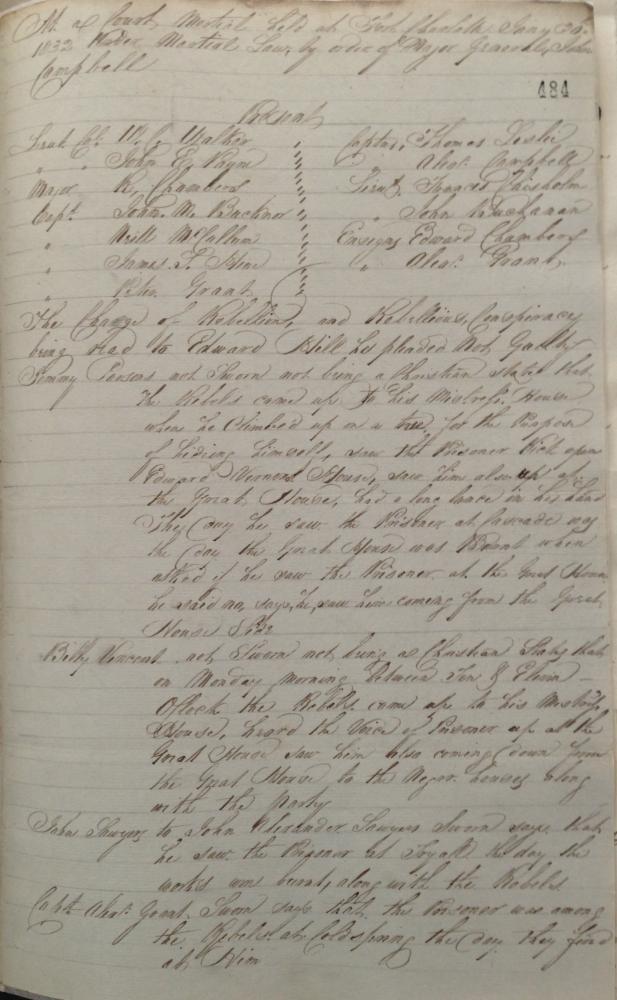 At a Court Martial held at Fort Charlotte Jany 26
1832 Under Martial Law, by order of Major General John
Campbell
484
Present
Lieut Col. W. C. Walker Captns. Thomas Leslie
" " John E. Payne " Alexr. Campbell
Major R. Chambers Lieut. Frances Chisholm
Capt. John M. Bucknor " John Buchanan
" Neill McCallum Ensigns Edward Chambers
" James T. Hine " Alexr. Grant
" Peter Grant
The Charge of Rebellion, and Rebellious Conspiracy
being read to Edward Hill he pleaded Not Guilty
Jimmy Parsons not Sworn not being a Christian states that
the Rebels came up to his Mistress's House
when he Climbed up on a tree for the Purpose
of hiding himself, saw the Prisoner Kick open
Edward Vernons House, saw him also up at
the Great House, had a long lance in his hand
The day he saw the Prisoner at Cascade was
the day the Great House was Burnt when
asked if he saw the Prisoner at the Great House
he said no, says, he, saw him coming from the Great
House Side
Billy Vincent not Sworn not being a Christian States that
on Monday morning between Ten & Eleven
OClock the Rebels came up to his Mistress
House, heard the Voice of Prisoner up at the
Great House saw him also coming down from
the Great House to the Negro houses along
with the party
John Sawyers to John Alexander Sawyers Sworn says that
he saw the Prisoner at the day the
works were burnt, along with the Rebels
Capt Alexr. Grant Sworn says that the Prisoner was among
the Rebels at Coldspring the day they fired
at Him